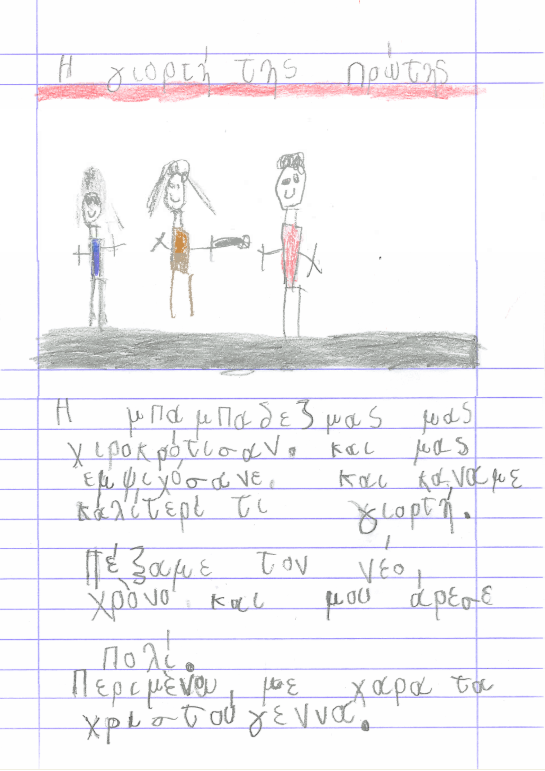 Η γιορτή της πρώτης
Η μπαμπαδεζ μας μας
χιροκρότισαν. και μας
εμψιχόσανε. και κάναμε
καλίτερι τι γιορτή.
Πέξαμε τον νέο,
χρόνο και μου άρεσε
πολί.
Περιμένου, με χαρα τα
χριστούγεννα.